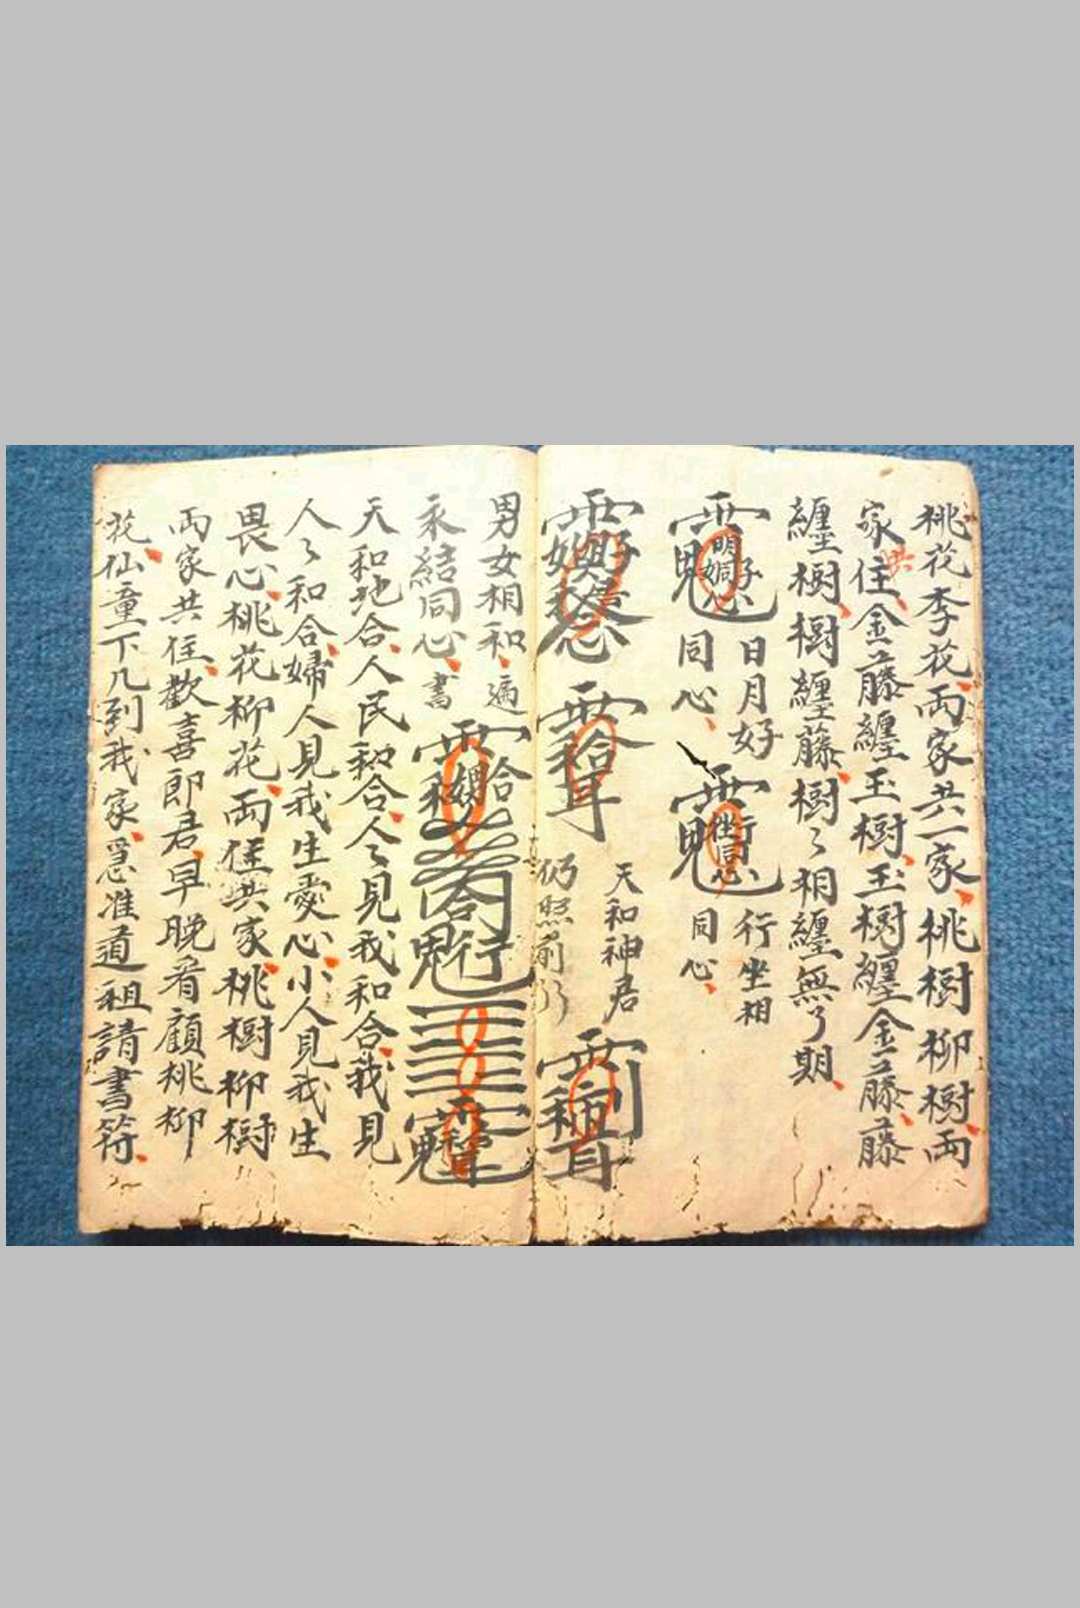 桃花李花両家共一家桃樹柳樹両
家共住金藤纏玉樹玉樹纏金藤藤
纏樹樹纏藤樹々相纏無了期
日月好
同心
行坐相
同心
天和神君
仍照前
男女相和
永結同心書
天和地合人民和合人々見我和合我見
人々和合婦人見我生愛心小人見我生
畏心桃花柳花両住共家桃樹柳樹
両家共住歡喜郎君早晚看顧桃柳
花仙童下凡到我家急准道祖請書符